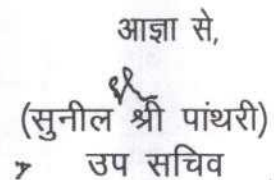 आज्ञा से,
(सुनील श्री पांथरी)
उप सचिव